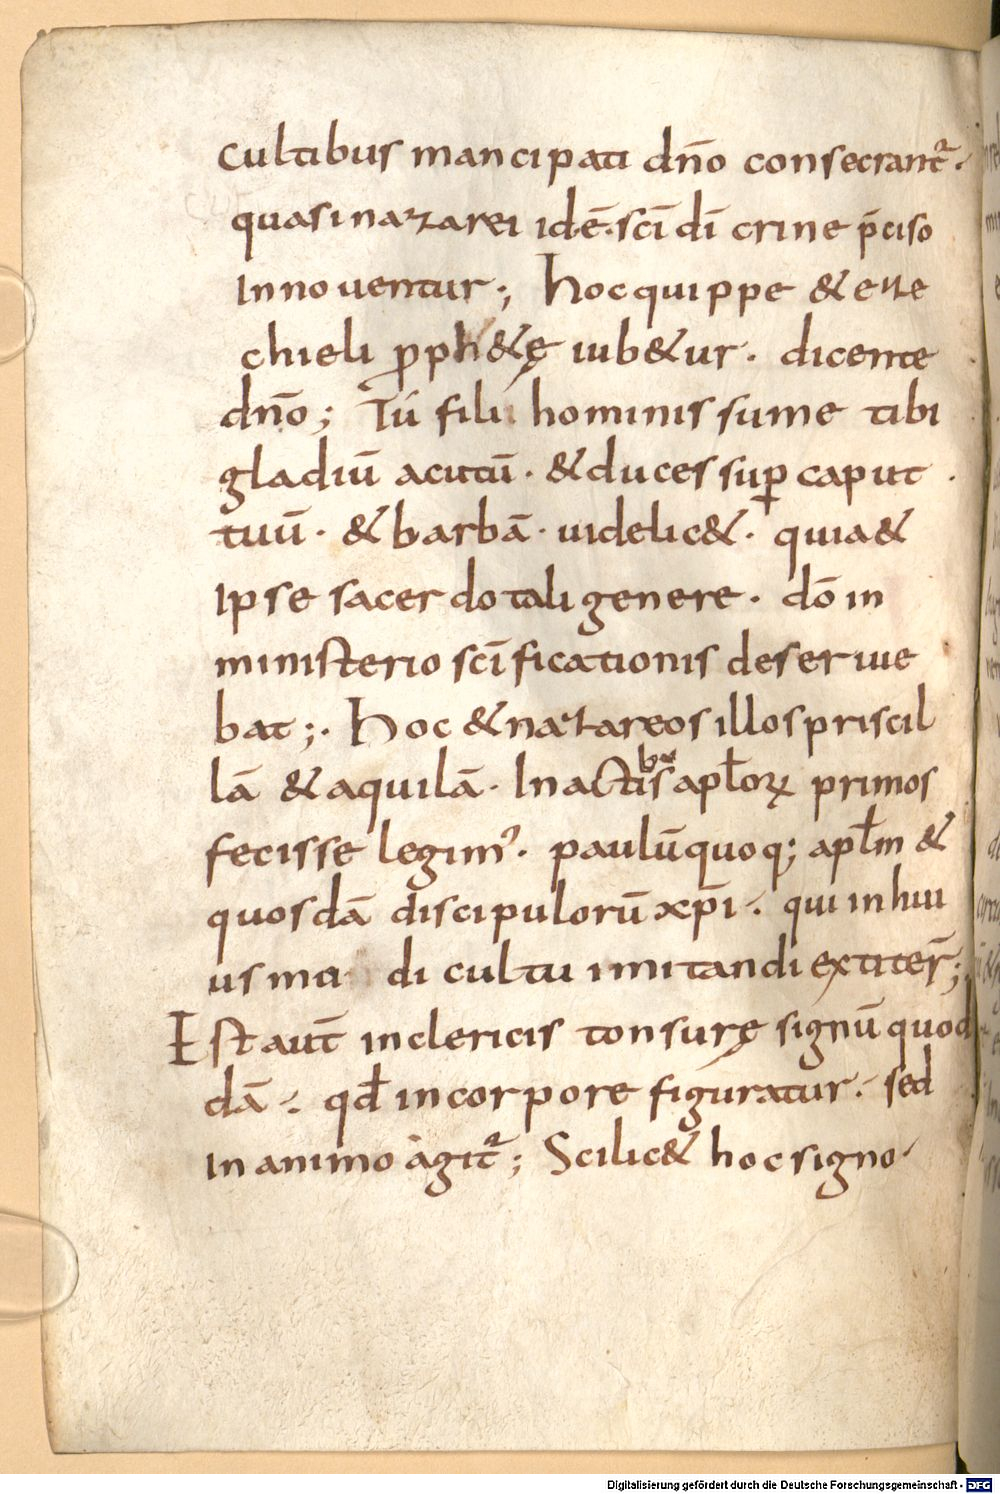 cultibus mancipati dn̄o consecrant᷑.
quasi nazarei id.ē. sc̄i dī crine p̄ciso
Innoventur; hoc quippe & eze
chieli proph&ę iub&ur. dicente
dn̄o; Tú fili hominis sume tibi
gladiū acutū. & duces sup̱ caput.
tuū. & barbā. uidelic&. quia &
ipse sacerdotali genere. dō in
ministerio sc̄ificationis deseruie
bat;. hoc & nazareos illos priscil
lā & aquilā. In actibus apl̄oꝝ primos
fecisse legimꝰ. paulū quoq; apl̄m &
quosdā discipulorū xp̄i. qui in hui
usmo di cultu imitandi extiter̄;
Est aut̄ in clericis tonsurę signū quod
dā. qd̄ in corpore figuratur. sed
in animo agit᷑; Scilic& hoc signo
Digitalisierung gefördert durch die Deutsche Forschungsgemeinschaft - DFG